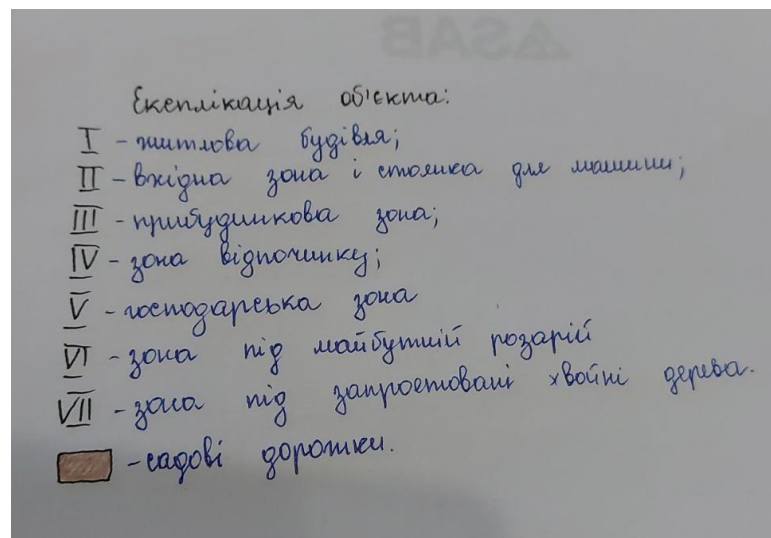 ASAB
Експлікація об'єкта:
I - житлова будівля;
II - вхідна зона і стоянка для машини;
III - прибудинкова зона;
IV - зона відпочинку;
V - господарська зона
VI - зона під майбутній розарій
VII - зона під запроєтовані хвойні дерева.
- садові дорожки.